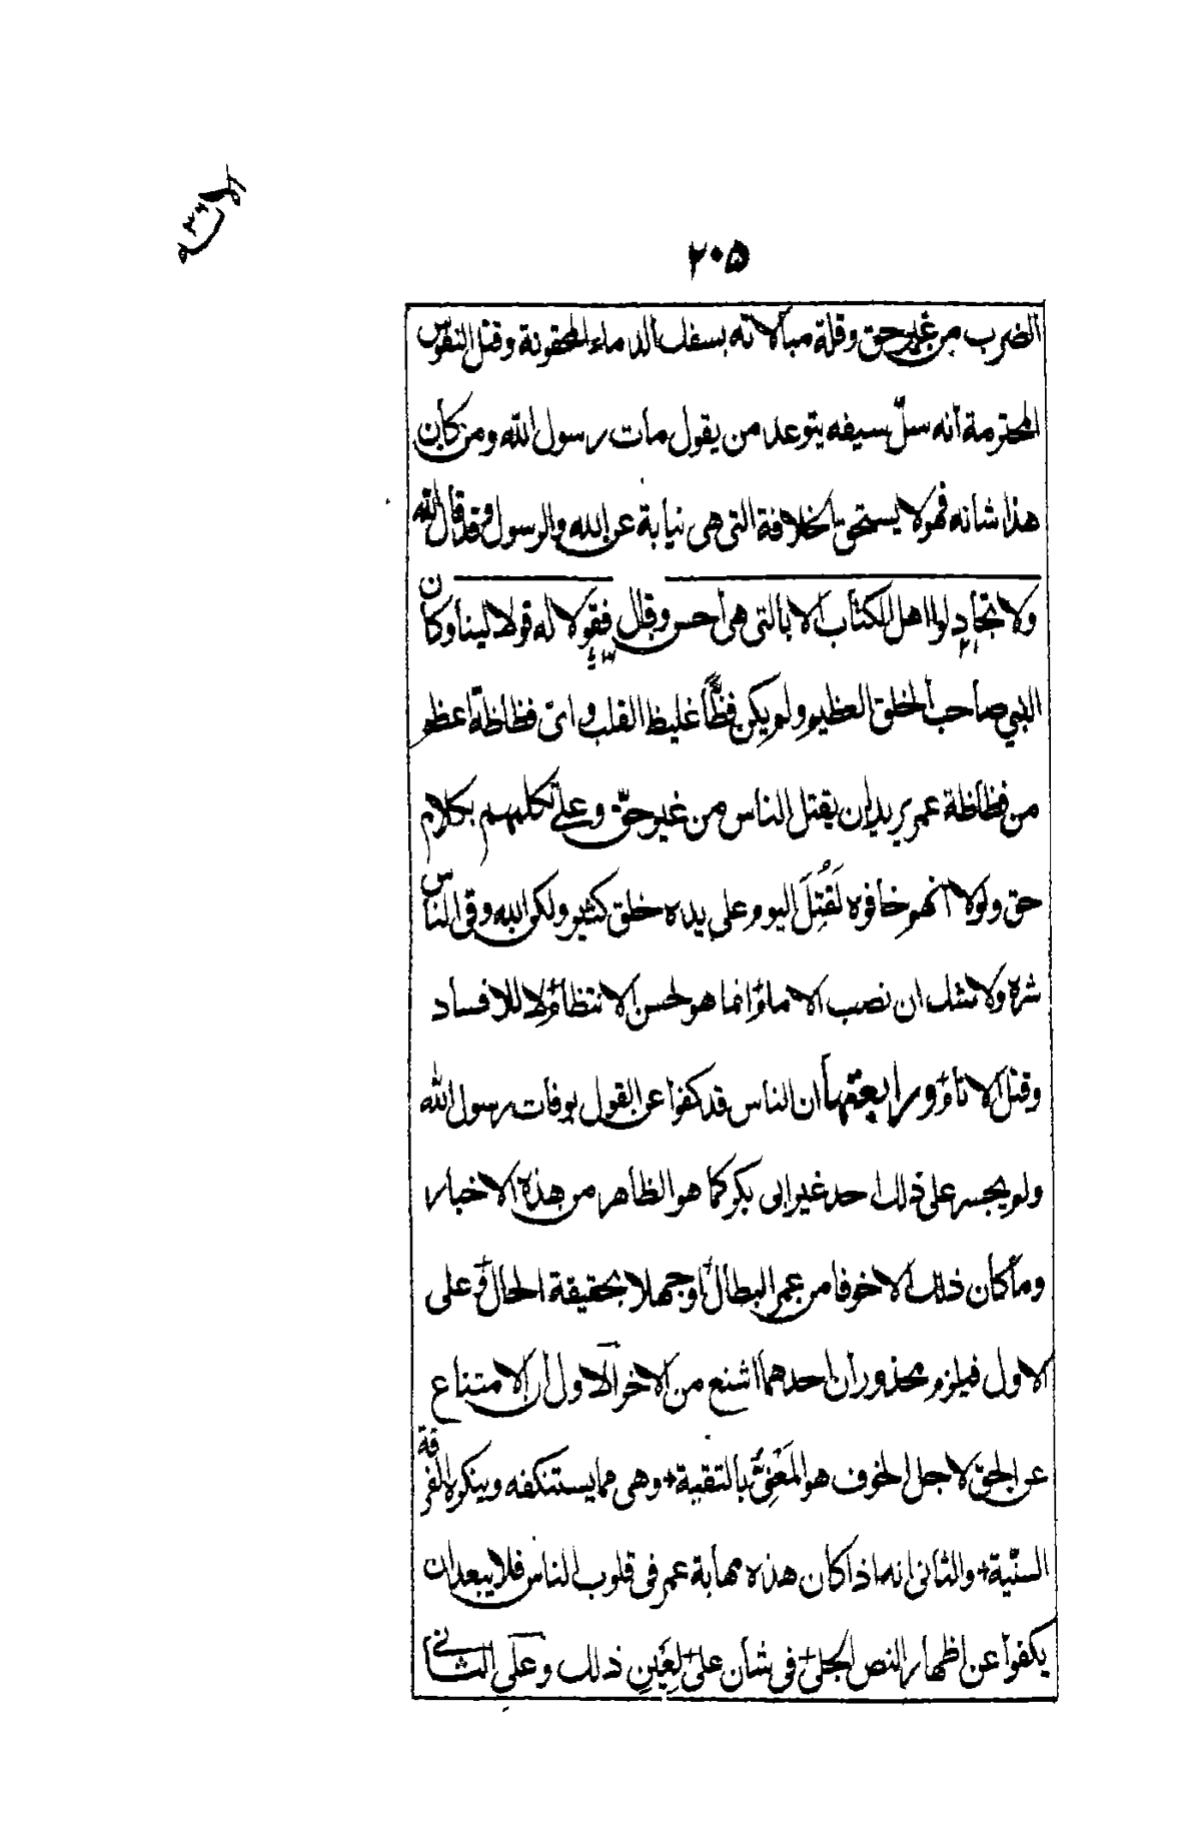 ۲۰۵
الضرب من غير حق وقلة مبالاته بسفك الدماء المحقونة وقتل النفوس
المحترمة انه سلّ سيفه يتوعد من يقول مات رسول الله ومن كان
هذا شانه فهو لا يستحق الخلافة التى هى نيابة عن الله والرسول وقد قال الله
ولا تجادلوا اهل الكتاب الا بالتى هى احسن وقال فقولا له قولا لينا وكان
النبي صاحب الخلق العظيم ولم يكن فظًّا غليظ القلب و اىّ فظاظة اعظم
من فظاظة عمر يريد ان يقتل الناس من غير حقّ وعلى تكلمهم بكلام
حق ولولا انهم خافوه لَقُتِلَ اليوم على يده خلق كثير ولكن الله وقى الناس
شره ولا شك ان نصب الامام انما هو لحسن الانتظام لا للافساد
وقتل الانام ورابعتها ان الناس قد كفوا عن القول بوفات رسول الله
ولم يجسر على ذلك احد غير ابى بكر كما هو الظاهر من هذه الاخبار
وما كان ذلك الا خوفا من عمر البطال او جهلا بحقيقة الحال وعلى
الاول فيلزم محذوران احدهما اشنع من الاخر الاول ان الامتناع
عن الحق لاجل الخوف هو المَعْنِىُّ بالتقية وهى مما يستنكفه وينكره الفرقة
السنّية والثانى انه اذا كان هذه مهابة عمر فى قلوب الناس فلا يبعد ان
يكفوا عن اظهار النص الجلى فى شان على لِعَينِ ذلك وعلى الثانى